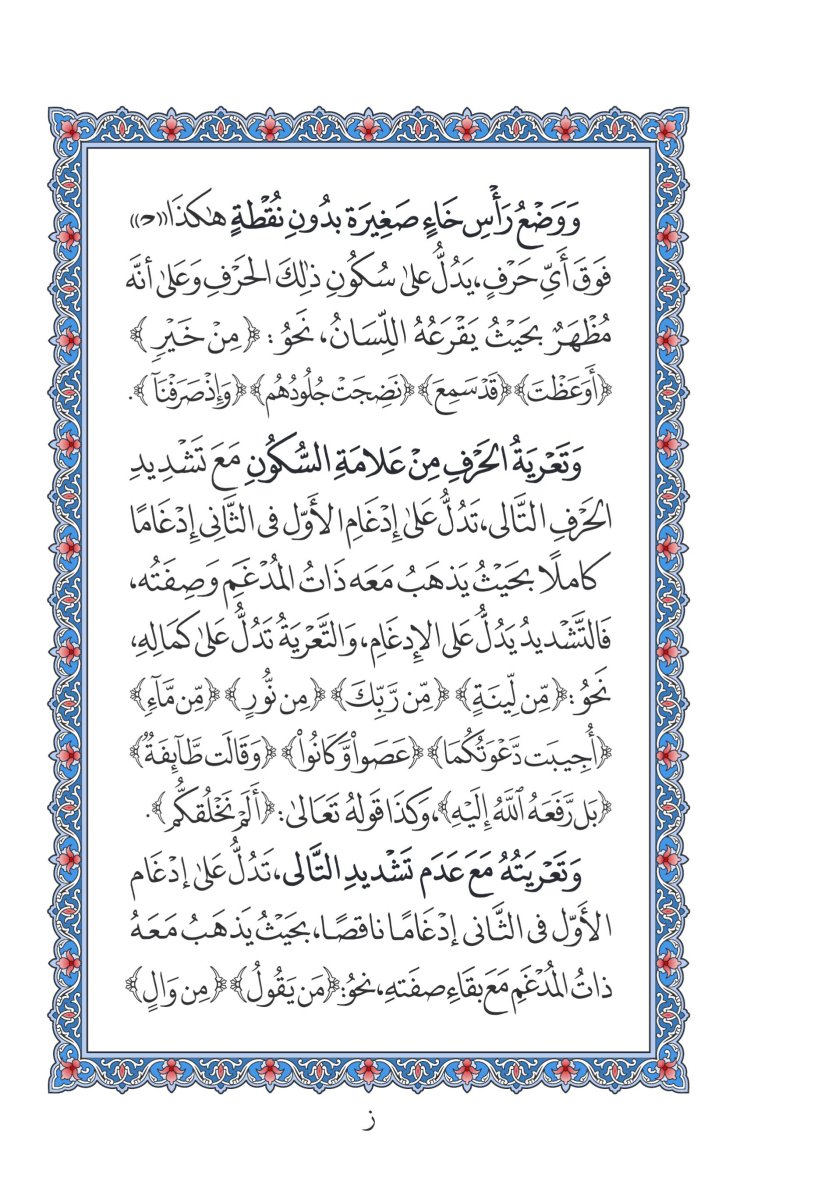 وَوَضْعُ رَأْسِ خَاءٍ صَغِيرَة بدُونِ نُقْطَةٍ هٰكَذَا ((ح))
فَوقَ أَيِّ حَرْفٍ، يَدُلُّ عَلىٰ سُكُونِ ذٰلِكَ الحَرْفِ وَعَلىٰ أنَّه
مُظْهَرٌ بحَيْثُ يَقْرَعُهُ اللِّسَانُ، نَحوُ: ﴿مِنْ خَيْرٍ﴾
﴿أَوَعَظْتَ﴾ ﴿قَدْ سَمِعَ﴾ ﴿نَضِجَتْ جُلُودُهُم﴾ ﴿وَإِذْ صَرَفْنَآ﴾.
وَتَعْرِيَةُ الحَرْفِ مِنْ عَلامَةِ السُّكُونِ مَعَ تَشْدِيدِ
الحَرْفِ التَّالى، تَدُلُّ عَلىٰ إِدْغَامِ الأَوَّل فى الثَّانى إِدْغَامًا
كَاملًا بحَيْثُ يَذهَبُ مَعَه ذَاتُ المُدْغَمِ وَصِفَتُه،
فَالتَّشْدِيدُ يَدُلُّ عَلى الإِدغَامِ، وَالتَّعْرِيَةُ تَدُلُّ عَلىٰ كَمَالِهِ،
نَحوُ: ﴿مِّن لِّينَةٍ﴾ ﴿مِّن رَّبِّكَ﴾ ﴿مِن نُّورٍ﴾ ﴿مِّن مَّآءٍ﴾
﴿أُجِيبَت دَّعْوَتُكُمَا﴾ ﴿عَصَوا۟ وَّكَانُوا۟﴾ ﴿وَقَالَت طَّآئِفَةٌ﴾
﴿بَل رَّفَعَهُ ٱللَّهُ إِلَيْهِ﴾، وَكَذَا قَولهُ تَعَالىٰ: ﴿أَلَمْ نَخْلُقكُّم﴾.
وَتَعْرِيَتُهُ مَعَ عَدَم تَشْديدِ التَّالى، تَدُلُّ عَلىٰ إِدْغَام
الأَوَّل فى الثَّانى إدْغَامًا نَاقصًا، بحَيْثُ يَذهَبُ مَعَهُ
ذاتُ المُدْغَمِ مَعَ بقَاءِ صفَتهِ، نحوُ: ﴿مَن يَقُولُ﴾ ﴿مِن وَالٍ﴾
ز